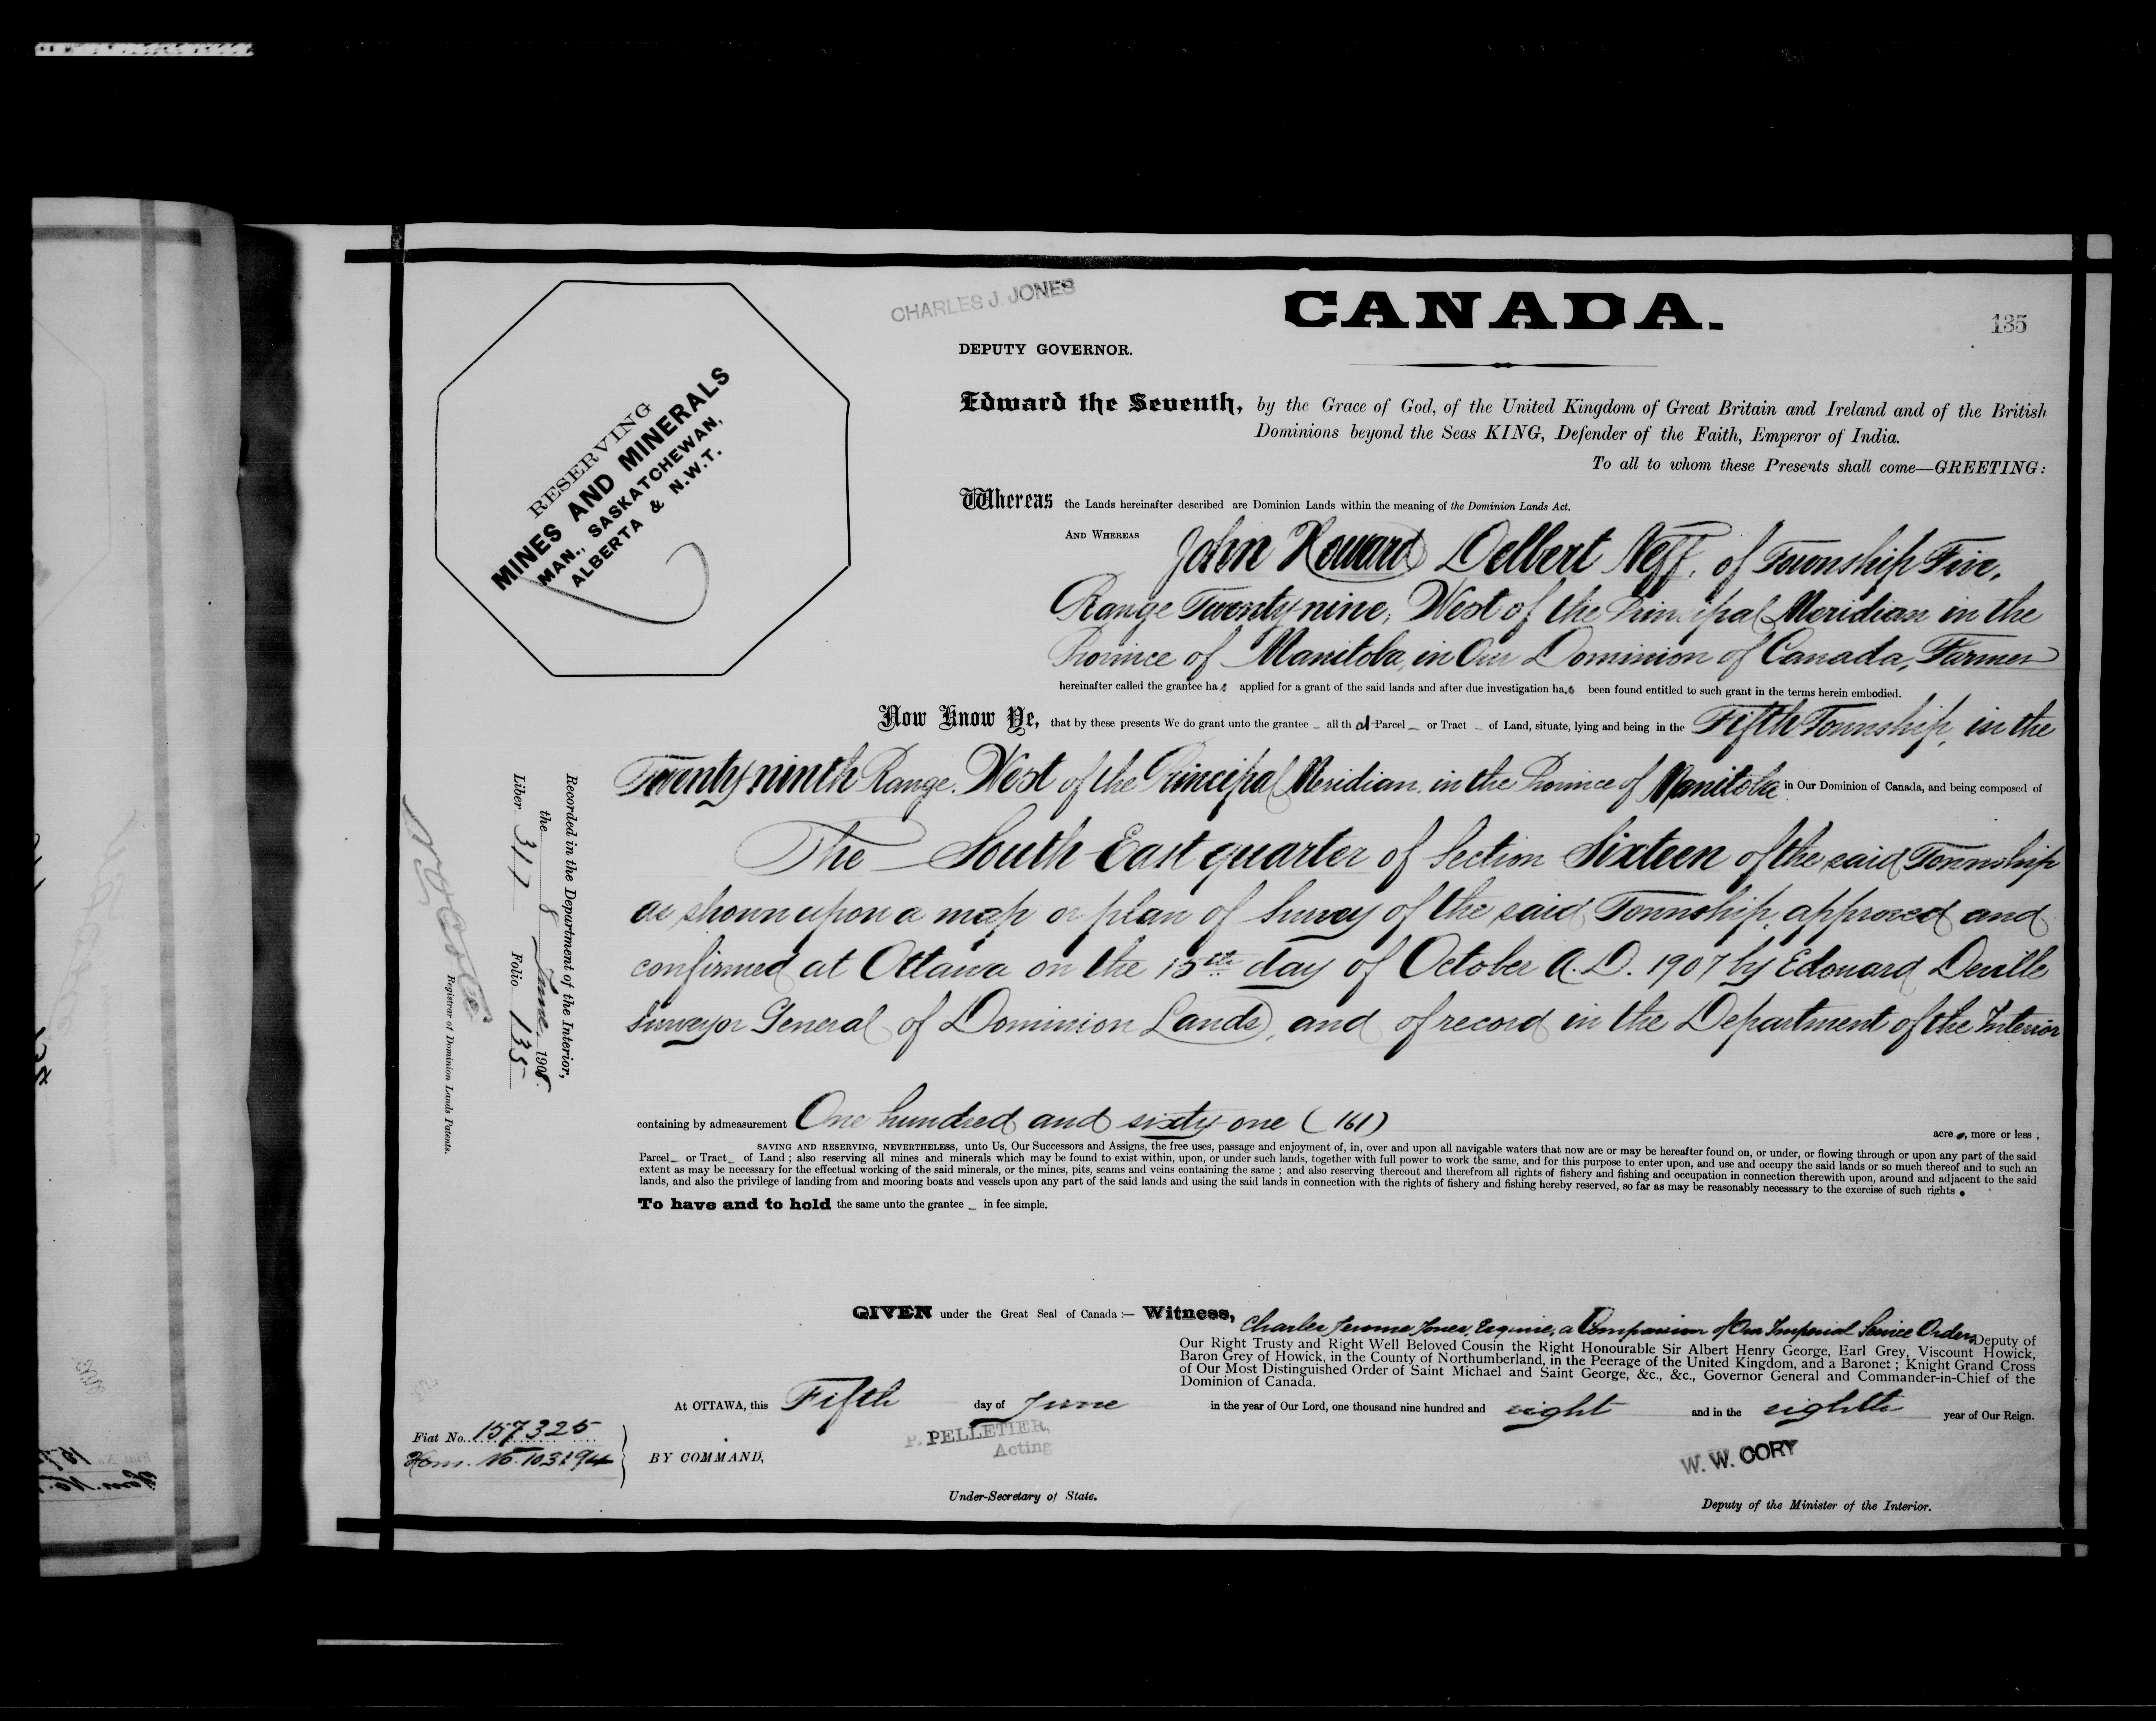 CHARLES J. JONES
CANADA.
135
DEPUTY GOVERNOR.
RESERVING
MINES AND MINERALS
MAN., SASKATCHEWAN,
ALBERTA & N.W.T.
Edward the Seventh, by the Grace of God, of the United Kingdom of Great Britain and Ireland and of the British
Dominions beyond the Seas KING, Defender of the Faith, Emperor of India.
To all to whom these Presents shall come—GREETING:
Whereas the Lands hereinafter described are Dominion Lands within the meaning of the Dominion Lands Act.
AND WHEREAS John Howard Delbert Neff, of Township Five,
Range Twenty nine, West of the Principal Meridian in the
Province of Manitoba, in Our Dominion of Canada, Farmer
hereinafter called the grantee has applied for a grant of the said lands and after due investigation has been found entitled to such grant in the terms herein embodied.
Now Know Ye, that by these presents We do grant unto the grantee _ all that Parcel _ or Tract _ of Land, situate, lying and being in the Fifth Township, in the
Twenty ninth Range, West of the Principal Meridian, in the Province of Manitoba in Our Dominion of Canada, and being composed of
The South East quarter of Section Sixteen of the said Township
as shown upon a map or plan of Survey of the said Township, approved and
confirmed at Ottawa on the 15th day of October A.D. 1907 by Edouard Deville
Surveyor General of Dominion Lands, and of record in the Department of the Interior
Recorded in the Department of the Interior,
the 8 June 1908.
Liber 317 Folio 135
Registrar of Dominion Lands Patents.
containing by admeasurement One hundred and sixty one (161) acres, more or less ;
SAVING AND RESERVING, NEVERTHELESS, unto Us, Our Successors and Assigns, the free uses, passage and enjoyment of, in, over and upon all navigable waters that now are or may be hereafter found on, or under, or flowing through or upon any part of the said
Parcel_ or Tract_ of Land ; also reserving all mines and minerals which may be found to exist within, upon, or under such lands, together with full power to work the same, and for this purpose to enter upon, and use and occupy the said lands or so much thereof and to such an
extent as may be necessary for the effectual working of the said minerals, or the mines, pits, seams and veins containing the same ; and also reserving thereout and therefrom all rights of fishery and fishing and occupation in connection therewith upon, around and adjacent to the said
lands, and also the privilege of landing from and mooring boats and vessels upon any part of the said lands and using the said lands in connection with the rights of fishery and fishing hereby reserved, so far as may be reasonably necessary to the exercise of such rights.
To have and to hold the same unto the grantee _ in fee simple.
GIVEN under the Great Seal of Canada :— Witness, Charles Jerome Jones, Esquire, a Companion of Our Imperial Service Order, Deputy of
Our Right Trusty and Right Well Beloved Cousin the Right Honourable Sir Albert Henry George, Earl Grey, Viscount Howick,
Baron Grey of Howick, in the County of Northumberland, in the Peerage of the United Kingdom, and a Baronet ; Knight Grand Cross
of Our Most Distinguished Order of Saint Michael and Saint George, &c., &c., Governor General and Commander-in-Chief of the
Dominion of Canada.
At OTTAWA, this Fifth day of June in the year of Our Lord, one thousand nine hundred and eight and in the eighth year of Our Reign.
Fiat No. 157325
Hom. No. 103194
BY COMMAND,
P. PELLETIER,
Acting
Under-Secretary of State.
W. W. CORY
Deputy of the Minister of the Interior.